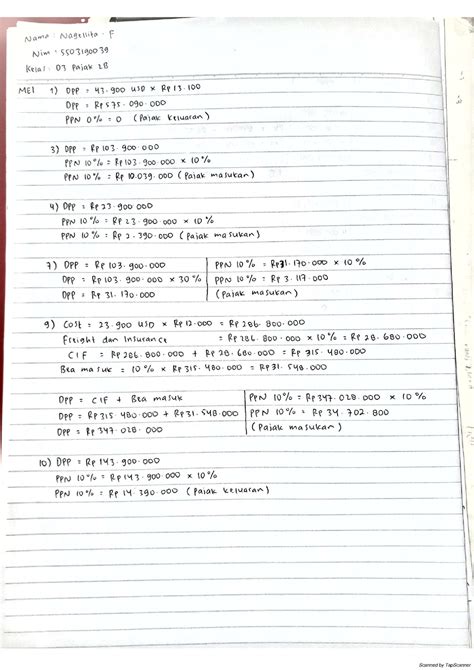 Nama : Nagellita . F
Nim : 5503190039
Kelas : D3 Pajak 2B
MEI 1) DPP = 43.900 USD x Rp 13.100
DPP = Rp 575.090.000
PPN 0% = 0 (Pajak Keluaran)
3) DPP = Rp 103.900.000
PPN 10% = Rp 103.900.000 x 10%
PPN 10% = Rp 10.039.000 (Pajak masukan)
4) DPP = Rp 23.900.000
PPN 10% = Rp 23.900.000 x 10%
PPN 10% = Rp 2.390.000 (Pajak masukan)
7) DPP = Rp 103.900.000
DPP = Rp 103.900.000 x 30%
DPP = Rp 31.170.000
PPN 10% = Rp 31.170.000 x 10%
PPN 10% = Rp 3.117.000
(Pajak masukan)
9) Cost = 23.900 USD x Rp 12.000 = Rp 286.800.000
Freight dan Insurance = Rp 286.800.000 x 10% = Rp 28.680.000
CIF = Rp 286.800.000 + Rp 28.680.000 = Rp 315.480.000
Bea masuk = 10% x Rp 315.480.000 = Rp 31.548.000
DPP = CIF + Bea masuk
DPP = Rp 315.480.000 + Rp 31.548.000
DPP = Rp 347.028.000
PPN 10% = Rp 347.028.000 x 10%
PPN 10% = Rp 34.702.800
(Pajak masukan)
10) DPP = Rp 143.900.000
PPN 10% = Rp 143.900.000 x 10%
PPN 10% = Rp 14.390.000 (Pajak keluaran)
Scanned by TapScanner